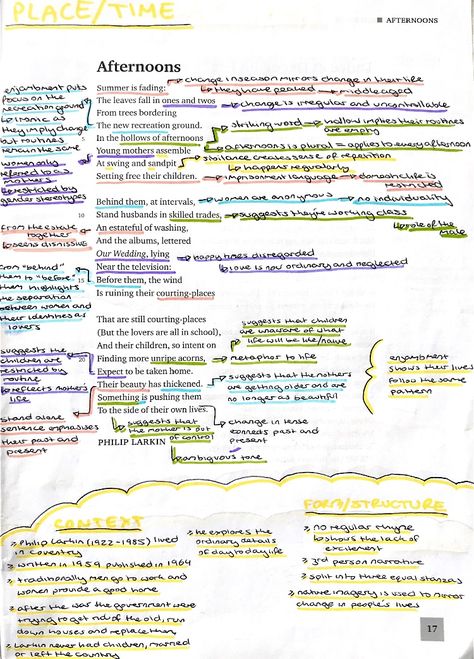 PLACE/TIME
AFTERNOONS
Afternoons
Summer is fading:
The leaves fall in ones and twos
From trees bordering
The new recreation ground.
In the hollows of afternoons
Young mothers assemble
At swing and sandpit
Setting free their children.
Behind them, at intervals,
10
Stand husbands in skilled trades,
An estateful of washing,
And the albums, lettered
Our Wedding, lying
Near the television:
15
Before them, the wind
Is ruining their courting-places
That are still courting-places
(But the lovers are all in school),
And their children, so intent on
20
Finding more unripe acorns,
Expect to be taken home.
Their beauty has thickened.
Something is pushing them
To the side of their own lives.
PHILIP LARKIN
change in season mirrors change in their life
they have peaked → middle aged
change is irregular and uncontrollable
striking word → hollow implies their routines
are empty
afternoons is plural = applies to every afternoon
sibilance creates sense of repetition
happens regularly
imprisonment language → domestic life is
restricted
women are anonymous → no individuality
suggests they're working class
role of the
male
happy times disregarded
love is now ordinary and neglected
suggests that children
are unaware of what
life will be like/naive
metaphor to life
suggests that the mothers
are getting older and are
no longer as beautiful
change in tense
connects past and
present
suggests that
the mother is out
of control
ambiguous tone
enjambment
shows their lives
follow the same
pattern
enjambment puts
focus on the
recreation ground
ironic as
they imply change
but routines
remain the same
women only
referred to as
mothers
restricted by
gender stereotypes
from the estate
together
seems dismissive
from "behind"
them to "before"
them highlights
the separation
between women and
their identities as
lovers
suggests the
children are
restricted by
routine
reflects mothers
life
stand alone
sentence emphasises
their past and
present
CONTEXT
Philip Larkin (1922-1985) lived
in Coventry
written in 1959 published in 1964
traditionally men go to work and
women provide a good home
after the war the government were
trying to get rid of the old, run
down houses and replace them
Larkin never had children, married
or left the country
he explores the
ordinary details
of day to day life
FORM/STRUCTURE
no regular rhyme
shows the lack of
excitement
3rd person narrative
split into three equal stanzas
nature imagery is used to mirror
change in people's lives
17